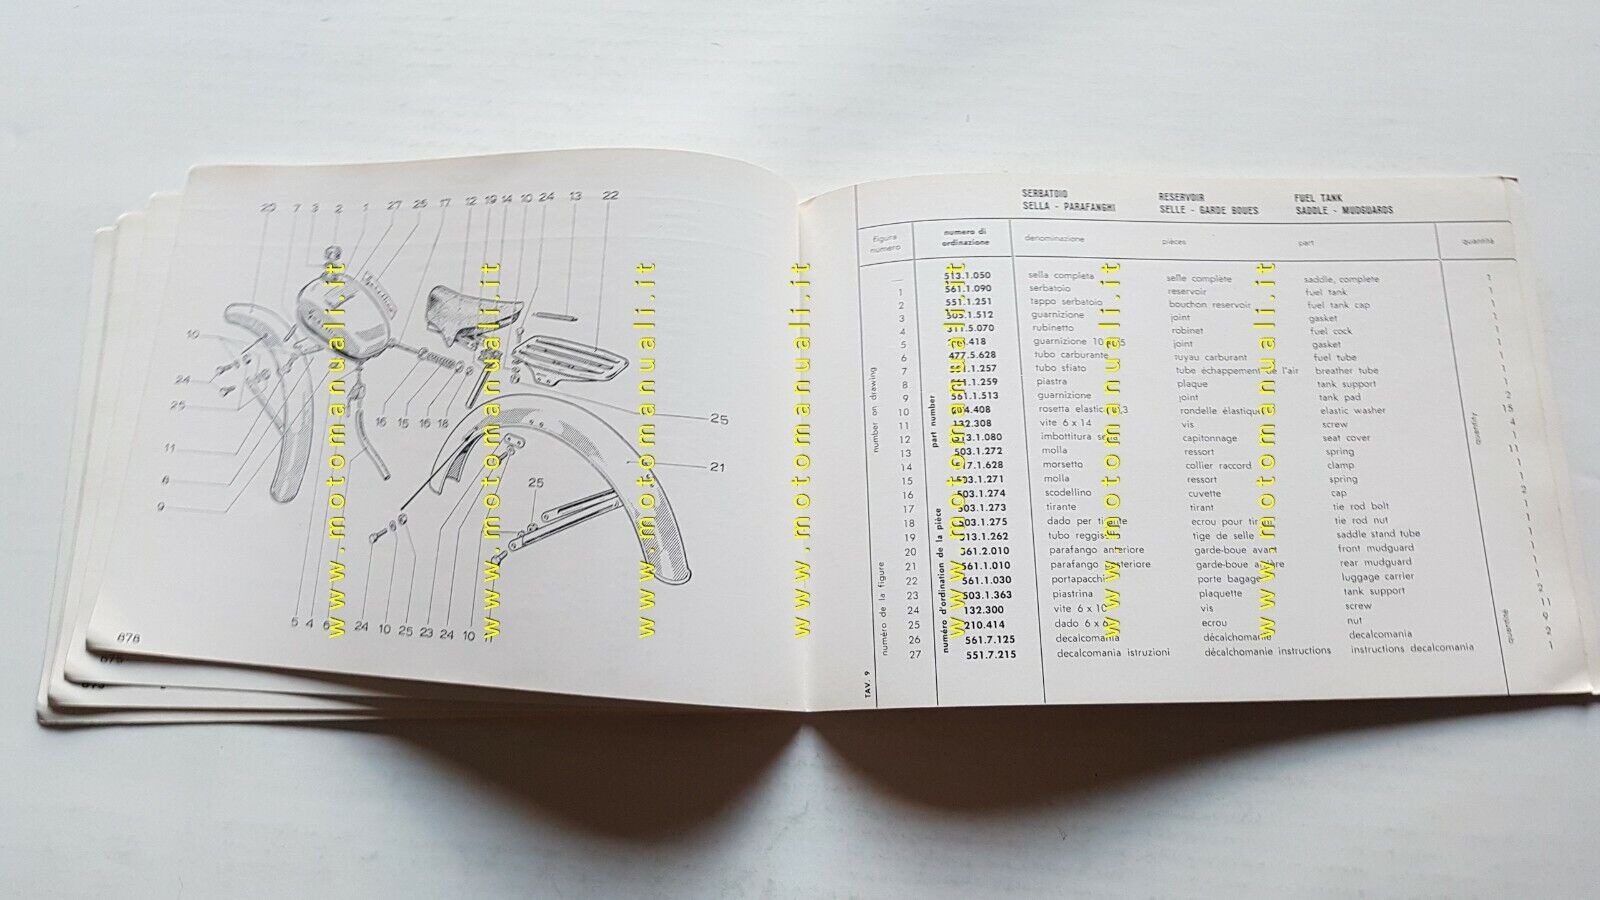 25 7 3 2 1 27 26 17 12 19 14 10 24 13 22
10
24
25
11
8
9
16 15 16 18
25
21
25
5 4 6 24 10 25 23 24 10
678
www.motomanuali.it
www.motomanuali.it
www.motomanuali.it
www.motomanuali.it
www.motomanuali.it
www.motomanuali.it
www.motomanuali.it
SERBATOIO RESERVOIR FUEL TANK
SELLA - PARAFANGHI SELLE - GARDE BOUES SADDLE - MUDGUARDS
figura numero numero di ordinazione denominazione pièces part quantità
— 513.1.050 sella completa selle complète saddle, complete 1
1 561.1.090 serbatoio reservoir fuel tank
2 551.1.251 tappo serbatoio bouchon reservoir fuel tank cap
3 505.1.512 guarnizione joint gasket
4 311.5.070 rubinetto robinet fuel cock
5 .418 guarnizione 10 joint gasket
6 477.5.628 tubo carburante tuyau carburant fuel tube
7 .1.257 tubo sfiato tube échappement de l'air breather tube
8 .1.259 piastra plaque tank support
9 561.1.513 guarnizione joint tank pad 2
10 .408 rosetta elastica rondelle élastique elastic washer 15
11 132.308 vite 6 x 14 vis screw 4
12 513.1.080 imbottitura capitonnage seat cover
13 503.1.272 molla ressort spring
14 .1.628 morsetto collier raccord clamp
15 503.1.271 molla ressort spring
16 503.1.274 scodellino cuvette cap
17 503.1.273 tirante tirant tie rod bolt
18 503.1.275 dado per tirante ecrou pour tirant tie rod nut
19 513.1.262 tubo reggisella tige de selle saddle stand tube
20 561.2.010 parafango anteriore garde-boue avant front mudguard
21 561.1.010 parafango posteriore garde-boue arrière rear mudguard
22 561.1.030 portapacchi porte bagages luggage carrier
23 503.1.363 piastrina plaquette tank support
24 132.300 vite 6 x 10 vis screw
25 210.414 dado 6 x ecrou nut
26 561.7.125 decalcomania décalchomanie decalcomania
27 551.7.215 decalcomania istruzioni décalchomanie instructions instructions decalcomania
number on drawing
part number
quantity
numéro de la figure
numéro d'ordination de la pièce
quantité
TAV. 9